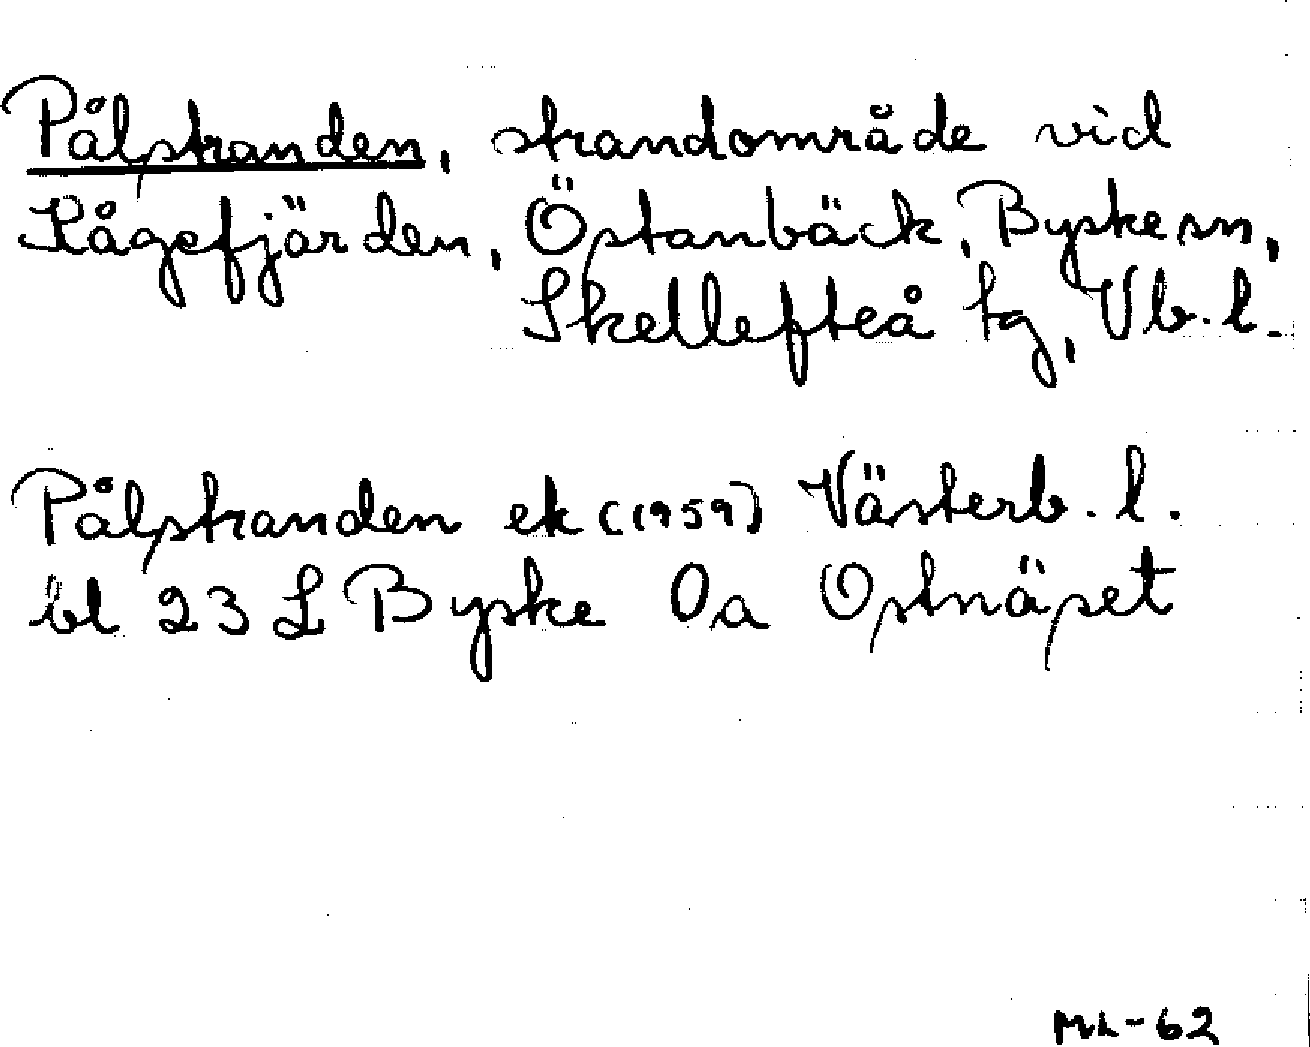 Pålstranden, strandområde vid
Kågefjärden, Östanbäck, Byske sn,
Skellefteå tg, Vb. l.
Pålstranden ek (1959) Västerb. l.
bl 23 L Byske 0a Ostnäset
ML-62